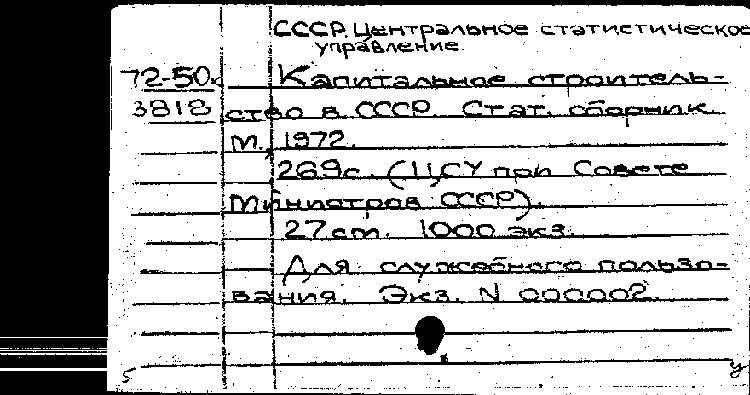 СССР. Центральное статистическое
управление.
72-50к Капитальное строитель-
3818 ство в СССР. Стат. сборник.
М., 1972.
269с. (ЦСУ при Совете
Министров СССР).
27см. 1000 экз.
Для служебного пользо-
вания. Экз. N 000002.
5 У